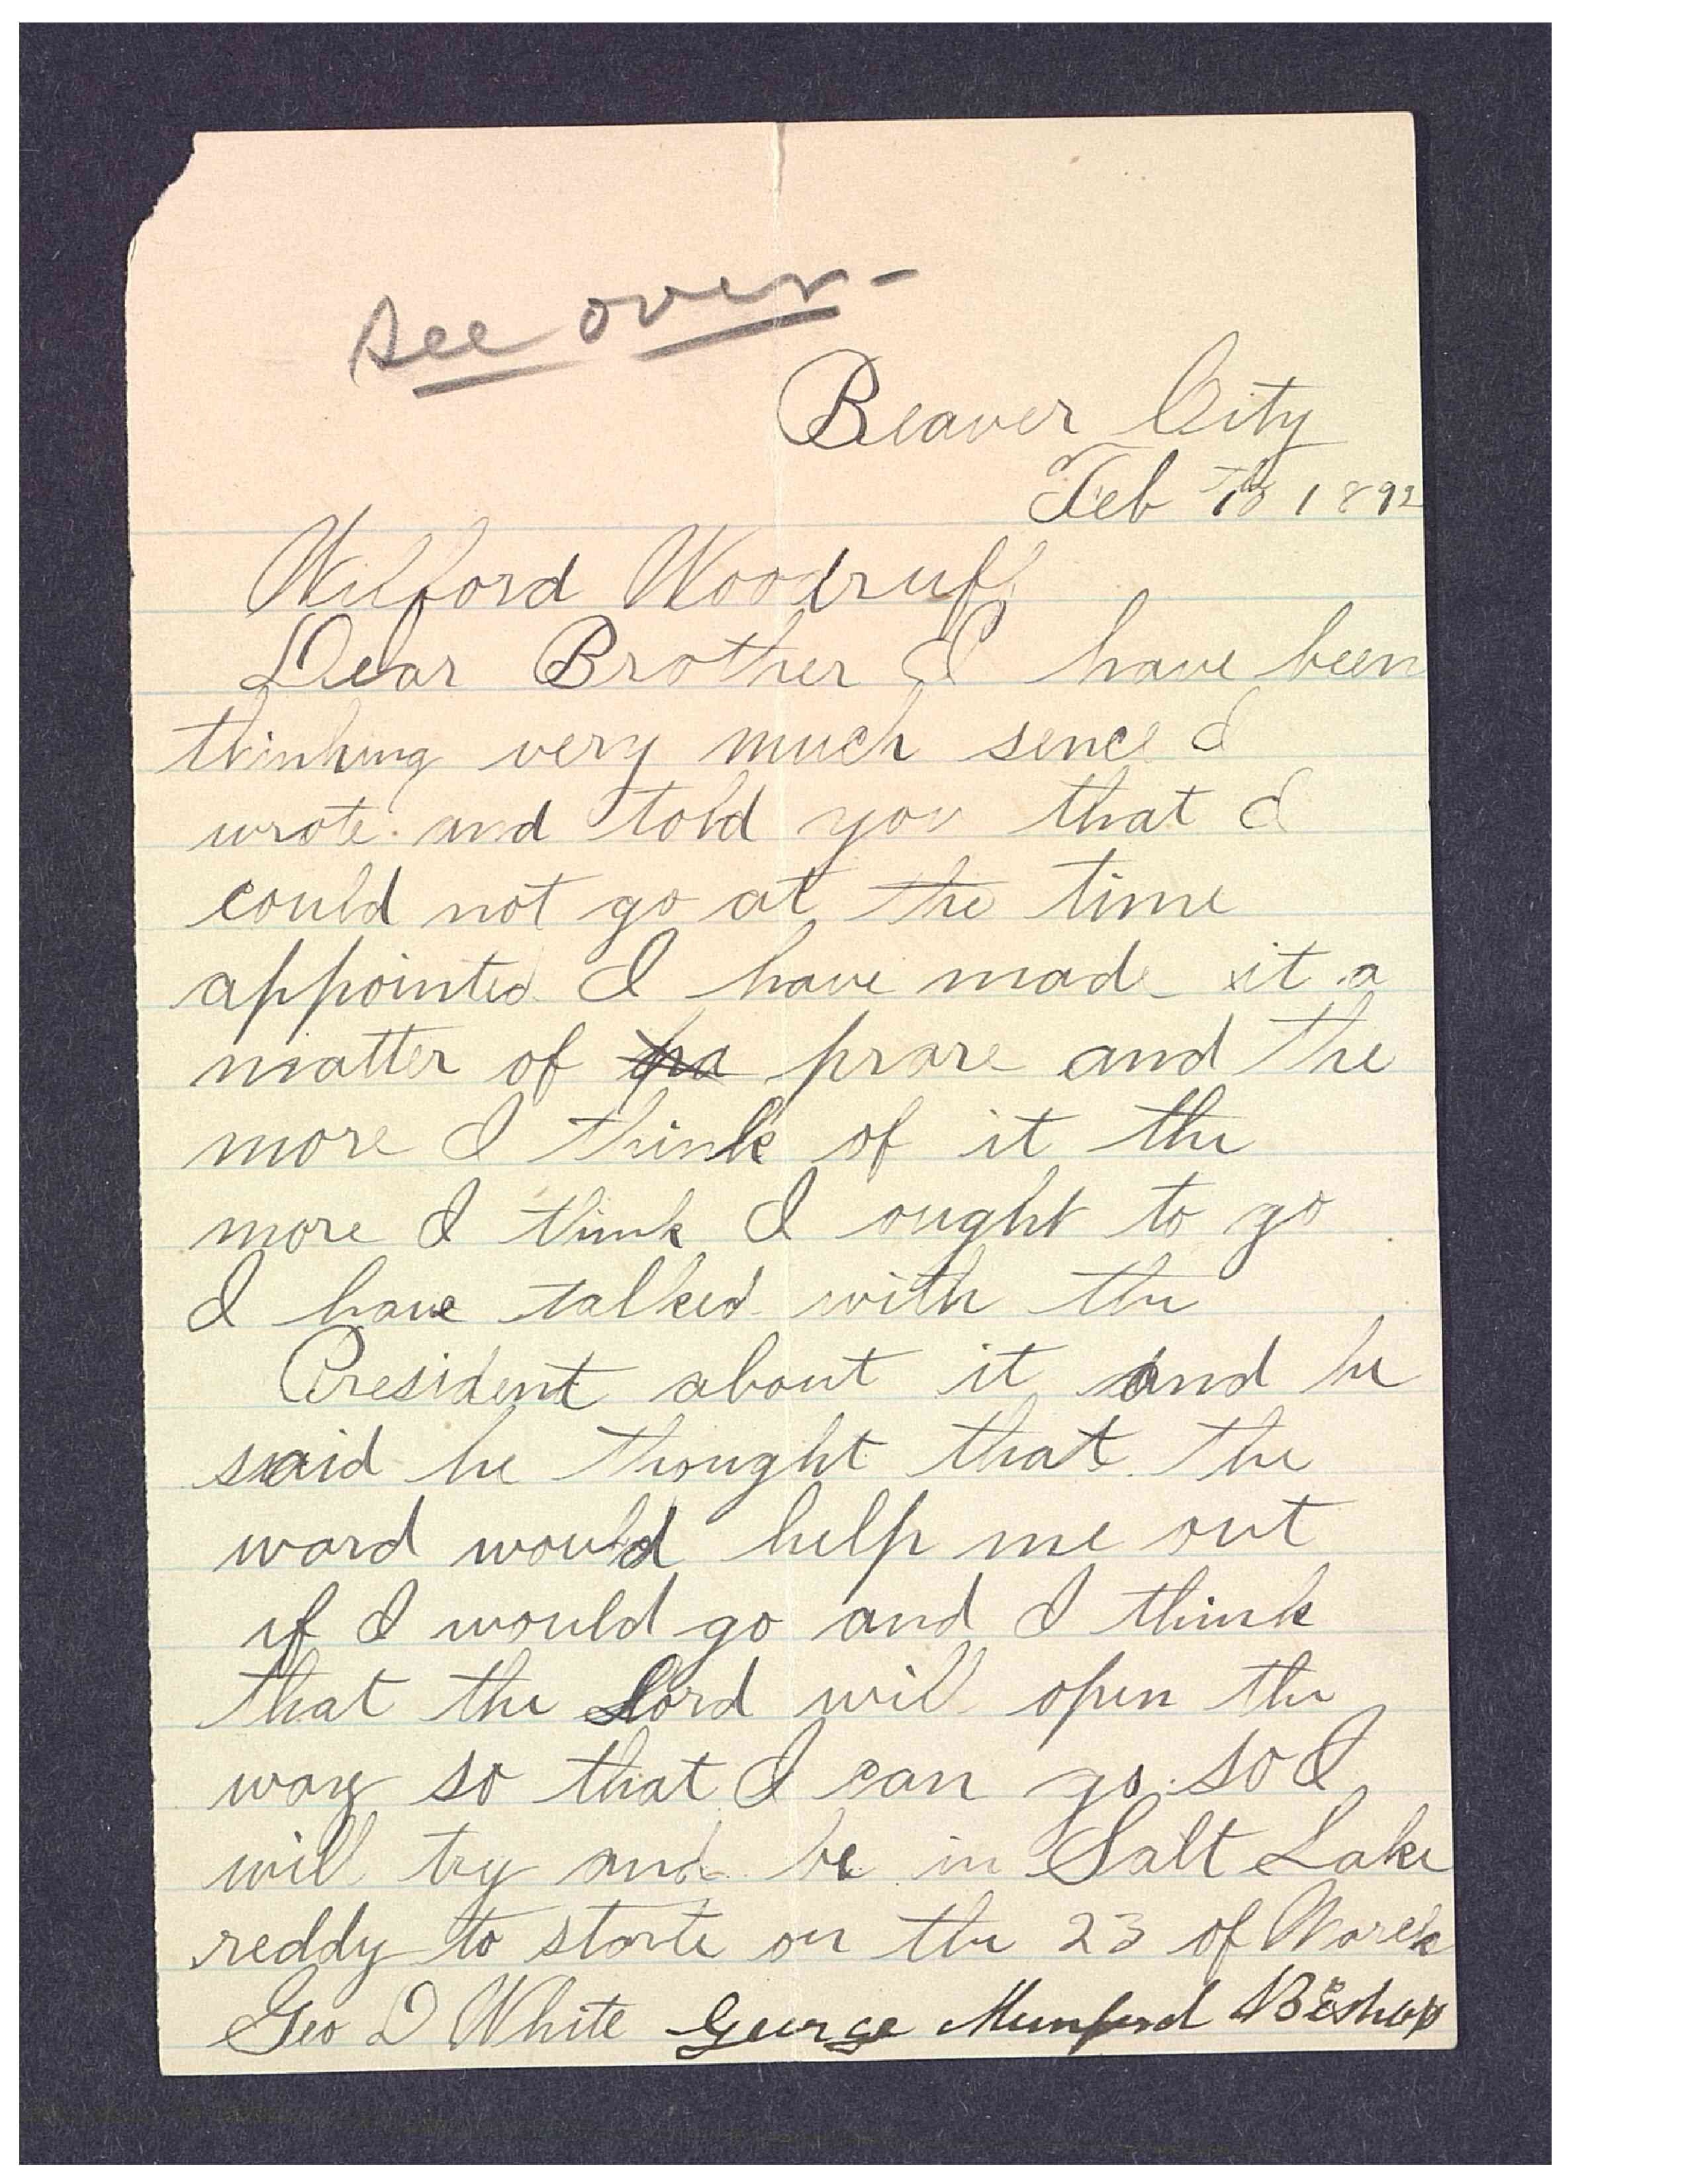 see over-
Beaver City
Feb 1892
Wilford Woodruff
Dear Brother I have been
thinking very much sence I
wrote and told you that I
could not go at the time
appointed I have made it a
matter of pra prare and the
more I think of it the
more I think I ought to go
I have talked with the
President about it and he
said he thought that the
ward would help me out
if I would go and I think
that the Lord will open the
way so that I can go so I
will try and be in Salt Lake
reddy to starte on the 23 of March
Geo D White George Munford Bishop